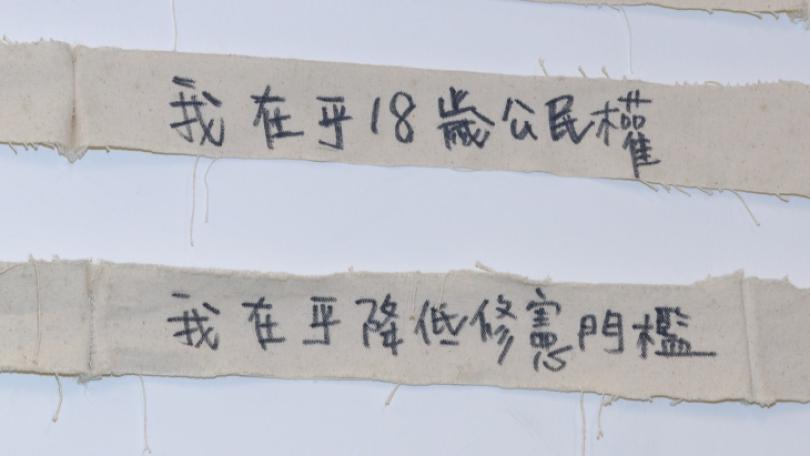 我在乎18歲公民權
我在乎降低修憲門檻